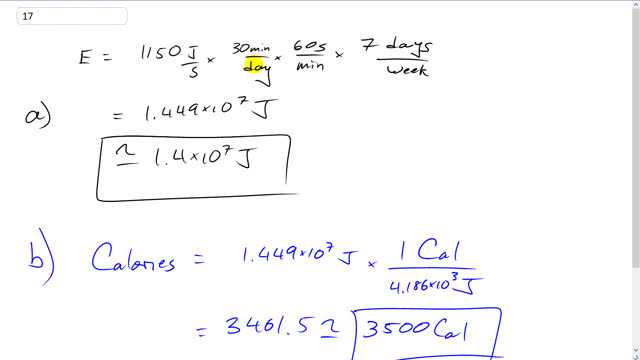 17
E = 1150 J/s × 30min/day × 60s/min × 7 days/week
a) = 1.449×10⁷ J
≃ 1.4×10⁷ J
b) Calories = 1.449×10⁷ J × 1 Cal/4.186×10³ J
= 3461.5 ≃ 3500 Cal